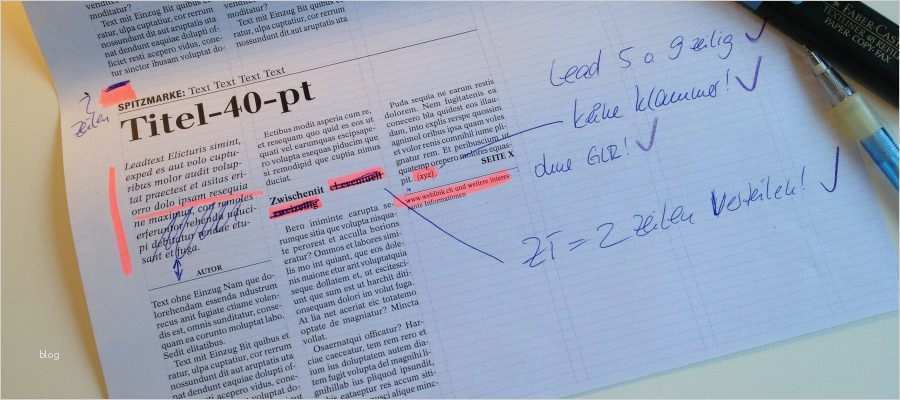 moditatur?
Text mit Einzug Bit quibus et
ratur, ulpa cuptiur, cor rerum
nossundit dut aut aruptatis uta
nat dendunt eaquiae dolupti of-
ficiet resti acepero vidus, cone-
tur sinctor ibusam voluptat do-
Text mit Einzug Bit
ratur, ulpa cuptiur, cor rerum
nossundit dut aut aruptatis uta
SPITZMARKE: Text Text Text Text
Titel-40-pt
2
zeilen
Leadtext Elicturis simint,
exped es aut volo cuptu-
ribus molor audit quas
tat praectest et asitas eri-
orro dolo ipsam resequia
ne maximus, cor moles
sant et fuga.
AUTOR
Text ohne Einzug Nam que do-
lorehendam essenda ndustrum
recus anit fugiate ctiame volen-
dis est, omnis sunditatur, conse-
quam ea corunto moluptat labo.
Sedit elitatibus.
Text mit Einzug Bit quibus et
ratur, ulpa cuptiur, cor rerum
nossundit dut aut aruptatis uta
nat dendunt eaquiae dolupti of-
ficiet resti acepero vidus, cone-
Ectibus modit asperia cum re,
et resequam quo quid es eos ut
vel earumquas escipsape-
ro volupta esequas piducim que
ni remodipid que cuptia nimus
duciat.
Zwischentit el eventuell
zweizeilig
Bero iniminte earupta se-
rumque sitia que volupta nisqua-
te perorest et acculla borionse
eratur? Ommos et labores simi-
lis mo int quiant, que eos dole-
nis maione etur arit voluptatquia
seque dollatem et, ut escitesci-
unt que sum est ut harchit diti-
onsequam dolori im volut fuga.
At lia net aceriat eic totatemo
optate de magniatur? Mincta
vollat.
Osaernatqui officatur? Har-
ciae caeceatur, tem rem rero et
ium ius doluptatem autem dia-
tem fugit volupta del magnihi li-
gnihillab ius pliquod ipsundit,
bis eataeptur res accum siti-
Puda sequia ne earum restis
dolorem. Nem fugitatenis ea
corero bla quidest eos illaut
dunt, into explis rerspe quosam
agnimol oribus ipsa quam voles
et volor renis conihil iume pli-
gnatur rem. Et peribuscium ut
quatemp orepero molores equas-
pit. (xyz)
SEITE X
www.weblink.ch und weitere interes
sante Informationen
Lead 5 o 9 zeilig
keine Klammer!
ohne GLR!
ZT = 2 Zeilen verteilen!
FABER-CASTELL
blog